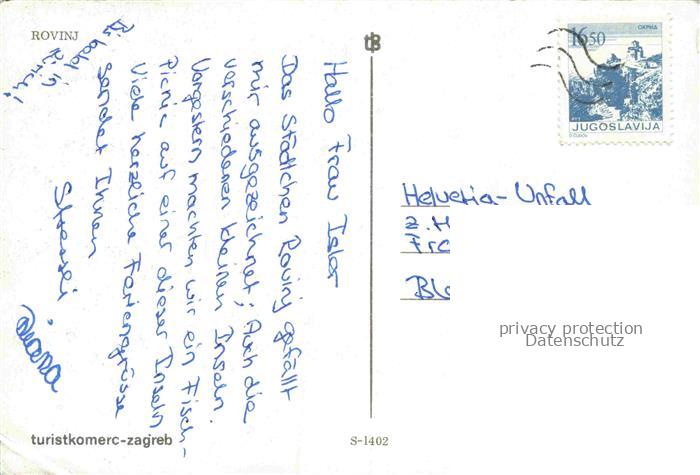 ROVINJ
Hallo Frau Isler
Das Städtchen Rovinj gefällt
mir ausgezeichnet; Auch die
verschiedenen kleinen Inseln.
Vorgestern machten wir ein Fisch-
Picnic auf einer dieser Inseln
Viele herzliche Feriengrüsse
sendet Ihnen
Bis bald in
16.50
ОХРИД
JUGOSLAVIJA
Helvetia-Unfall
z. H
Fra
privacy protection
Datenschutz
turistkomerc-zagreb
S-1402